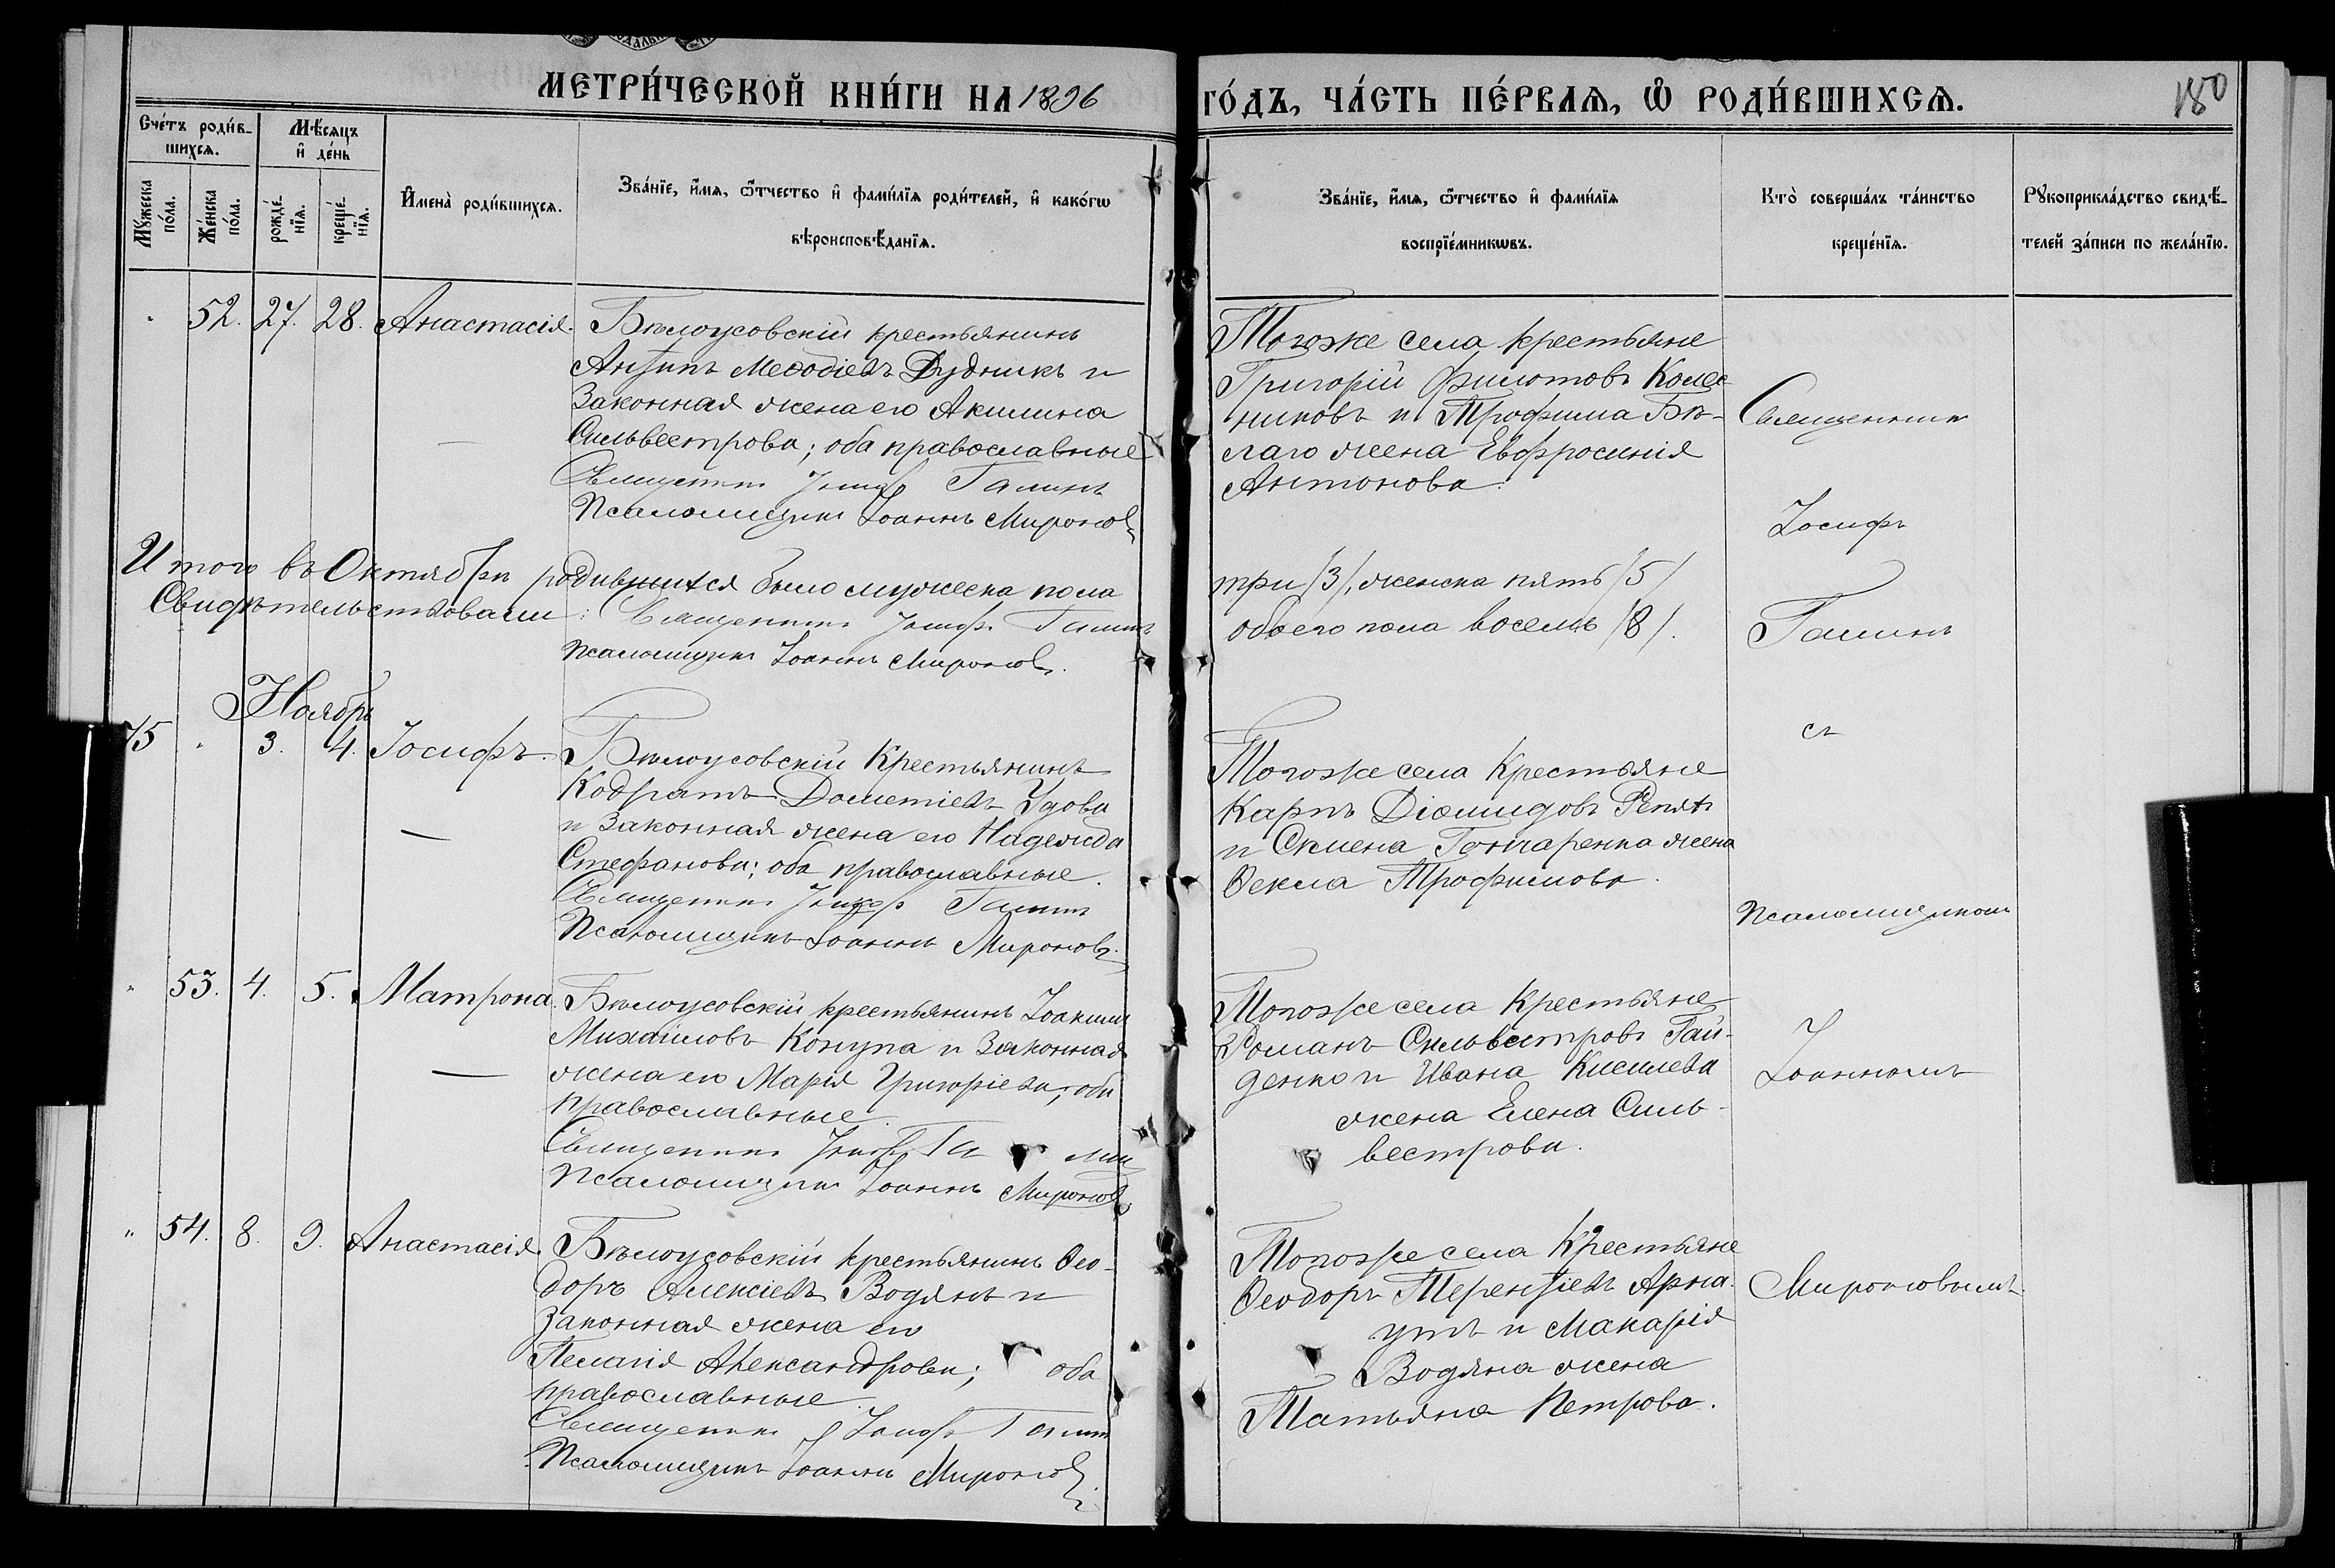 МЕТРИ́ЧЕСКОЙ КНИ́ГИ НА 1896
ГО́ДЪ, ЧА́СТЬ ПЕ́РВАЯ, Ѽ РОДИ́ВШИХСѦ.
180
Сче́тъ роди́в-
шихсѧ.
Мѣ́сѧцъ
и҆ де́нь
Мꙋ́жеска
по́ла.
Же́нска
по́ла.
рожде́-
нїѧ.
креще́-
нїѧ.
И҆мена̀ роди́вшихсѧ.
Зва́нїе, и҆́мѧ, ѻ҆́тчество и҆ фами́лїѧ роди́телей, и҆ како́гѡ
вѣроисповѣ́данїѧ.
Зва́нїе, и҆́мѧ, ѻ҆́тчество и҆ фами́лїѧ
воспрїе́мникѡвъ.
Кто̀ соверша́лъ та́инство
креще́нїѧ.
Рꙋкоприкла́дство свидѣ́-
телей за́писи по жела́нїю.
52. 27. 28. Анастасія.
Бѣлоусовскій крестьянинъ
Антипъ Меѳодіевъ Дудникъ и
законная жена его Акилина
Сильвестрова; оба православные
Священникъ Іосифъ Галинъ
Псаломщикъ Іоаннъ Мироновъ
Тогоже села крестьяне
Григорій Филотовъ Колес-
никовъ и Трофима Бѣ-
лаго жена Евфросинія
Антонова.
Итого въ Октябрѣ родившихся было мужеска пола
три /3/, женска пять /5/
обоего пола восемь /8/.
Свидѣтельствовали: Священникъ Іосифъ Галинъ
Псаломщикъ Іоаннъ Мироновъ.
Ноябрь
45 " 3. 4. Іосифъ.
Бѣлоусовскій Крестьянинъ
Кодратъ Дометіевъ Удова
и законная жена его Надежда
Стефанова; оба православные.
Священникъ Іосифъ Галинъ
Псаломщикъ Іоаннъ Мироновъ.
Тогоже села Крестьяне
Карпъ Діомидовъ Репях
и Семена Гончаренка жена
Ѳекла Трофимова.
" 53. 4. 5. Матрона.
Бѣлоусовскій крестьянинъ Іоакимъ
Михаиловъ Коцупа и законная
жена его Марія Григоріева; оба
православные.
Священникъ Іосифъ Галинъ
Псаломщикъ Іоаннъ Мироновъ
Тогоже села Крестьяне
Романъ Сильвестровъ Гай-
денко и Ивана Киселева
жена Елена Силь-
вестрова.
" 54. 8. 9. Анастасія.
Бѣлоусовскій крестьянинъ Ѳео-
доръ Алексіевъ Водянъ и
законная жена его
Пелагія Александрова; оба
православные.
Священникъ Іосифъ Галинъ
Псаломщикъ Іоаннъ Мироновъ.
Тогоже села Крестьяне
Ѳеодоръ Терентіевъ Арна-
утъ и Макарія
Водяна жена
Татьяна Петрова.
Священникъ
Іосифъ
Галинъ
съ
Псаломщикомъ
Іоанномъ
Мироновымъ